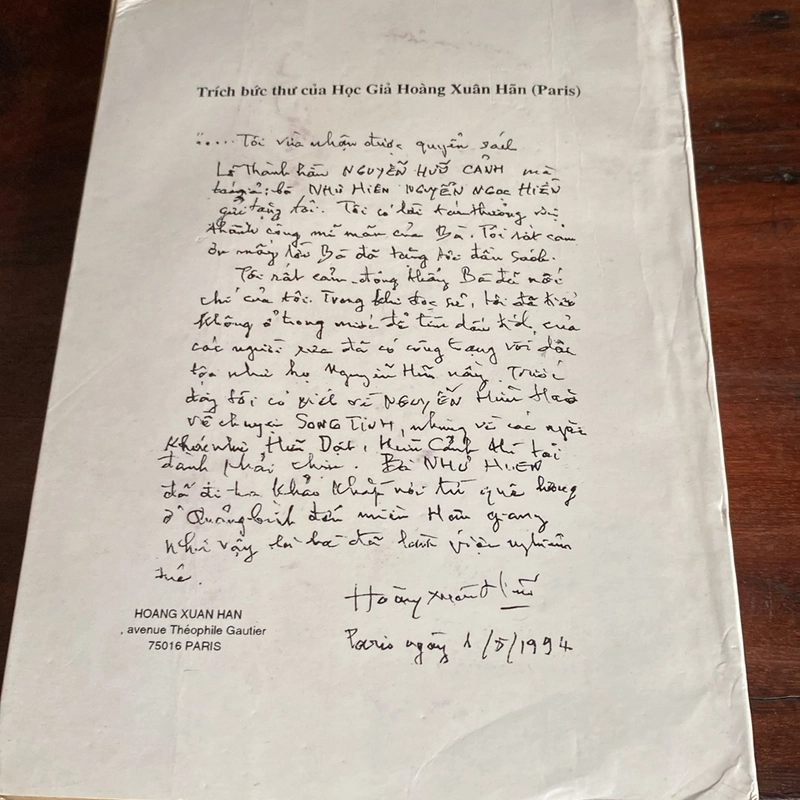 Trích bức thư của Học Giả Hoàng Xuân Hãn (Paris)
"..... Tôi vừa nhận được quyển sách
Lễ Thành hầu NGUYỄN HỮU CẢNH mà
tác giả: bà NHƯ HIÊN NGUYỄN NGỌC HIỀN
gửi tặng tôi. Tôi có lời tán thưởng sự
thành công mĩ mãn của Bà. Tôi rất cám
ơn mấy lời Bà đã tặng tôi đầu sách.
Tôi rất cảm-động thấy Bà đã nối
chí của tôi. Trong khi đọc sử, tôi đã
không ở trong nước để tìm dấu tích của
các người xưa đã có công trạng với dân
tộc như họ Nguyễn Hữu nầy. Trước
đây tôi có viết về NGUYỄN HỮU HÀO
về chuyện SONG TINH, nhưng về các người
khác như Hữu Dật, Hữu Cảnh thì tôi
đành phải chịu. Bà NHƯ HIÊN
đã đi tra khảo khắp nơi từ quê hương
ở Quảng bình đến miền Hậu giang
như vậy là bà đã làm việc nghiêm
túc.
Hoàng Xuân Hãn
HOANG XUAN HAN
, avenue Théophile Gautier
75016 PARIS
Paris ngày 1/5/1994